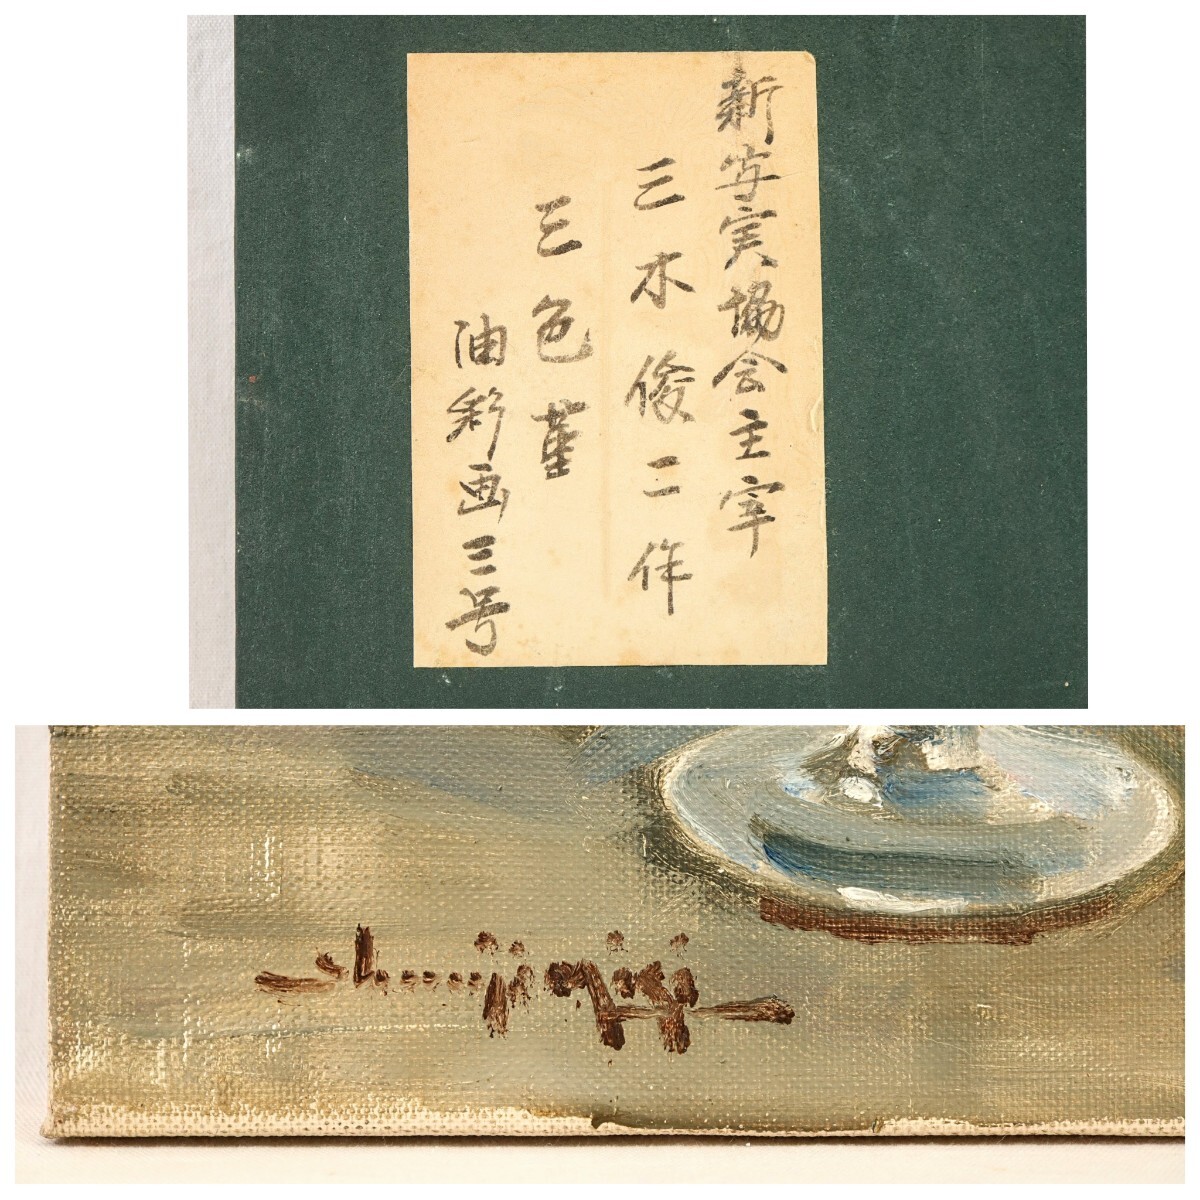 新写実協会主宰
三木俊二作
三色菫
油彩画三号